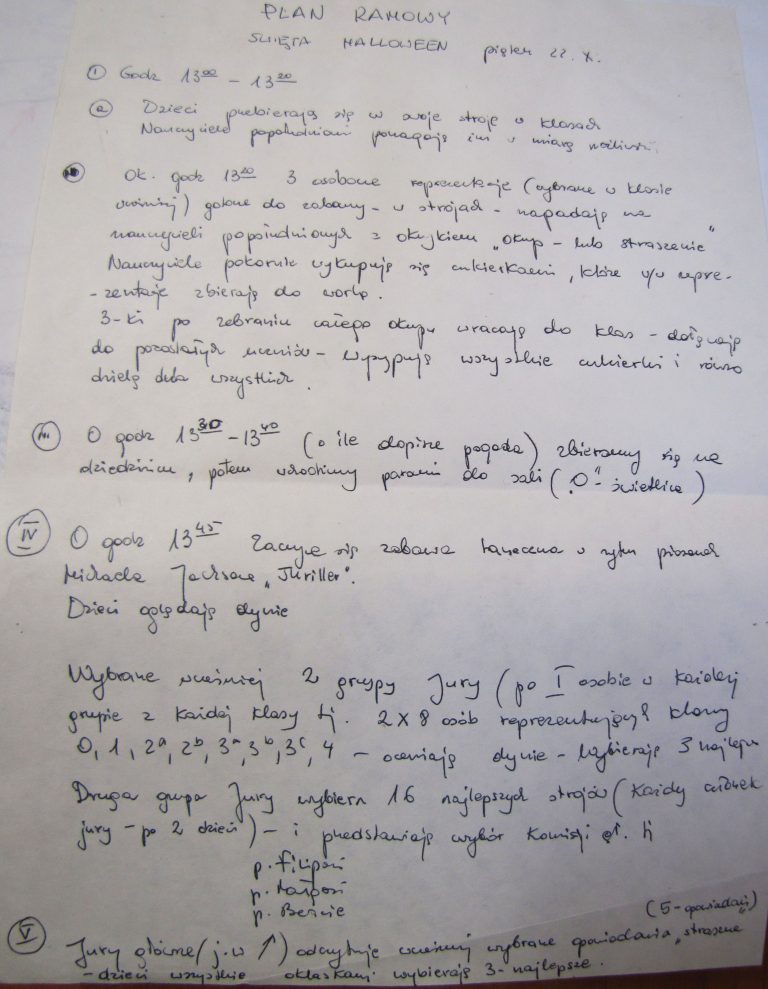 PLAN RAMOWY
ŚWIĘTA HALLOWEEN piątek 22.X.
① Godz 13⁰⁰ - 13²⁰
ⓐ Dzieci przebierają się w swoje stroje w klasach
Nauczyciele popołudniowi pomagają im w miarę możliwości.
Ok. godz 13²⁰ 3 osobowe reprezentacje (wybrane w klasie
wcześniej) gotowe do zabawy - w strojach - napadają na
nauczycieli popołudniowych z okrzykiem „okup - lub straszenie"
Nauczyciele pokornie wykupują się cukierkami, które w/w repre-
-zentacje zbierają do worka.
3-ki po zebraniu całego okupu wracają do klas - dołączają
do pozostałych uczniów - wysypują wszystkie cukierki i równo
dzielą dla wszystkich.
III O godz 13³⁰ - 13⁴⁰ (o ile dopisze pogoda) zbieramy się na
dziedzińcu, potem wchodzimy parami do sali („O" - świetlica)
IV O godz 13⁴⁵ Zaczyna się zabawa taneczna w rytm piosenek
Michaela Jacksona „Thriller".
Dzieci oglądają dynie
Wybrane wcześniej 2 grupy Jury (po I osobie w każdej
grupie z każdej klasy tj. 2 x 8 osób reprezentujących klasy
0, 1, 2ᵃ, 2ᵇ, 3ᵃ, 3ᵇ, 3ᶜ, 4 - oceniają dynie - wybierają 3 najleps
Druga grupa Jury wybiera 16 najlepszych strojów (każdy członek
jury - po 2 dzieci) - i przedstawiają wybór Komisji gł. tj
p. Filiposi
p. Małgosi
p. Beacie
(5-opowiadań)
V Jury główne (j.w ↑) odczytuje wcześniej wybrane opowiadania „straszne"
- dzieci wszystkie oklaskami wybierają 3-najlepsze.